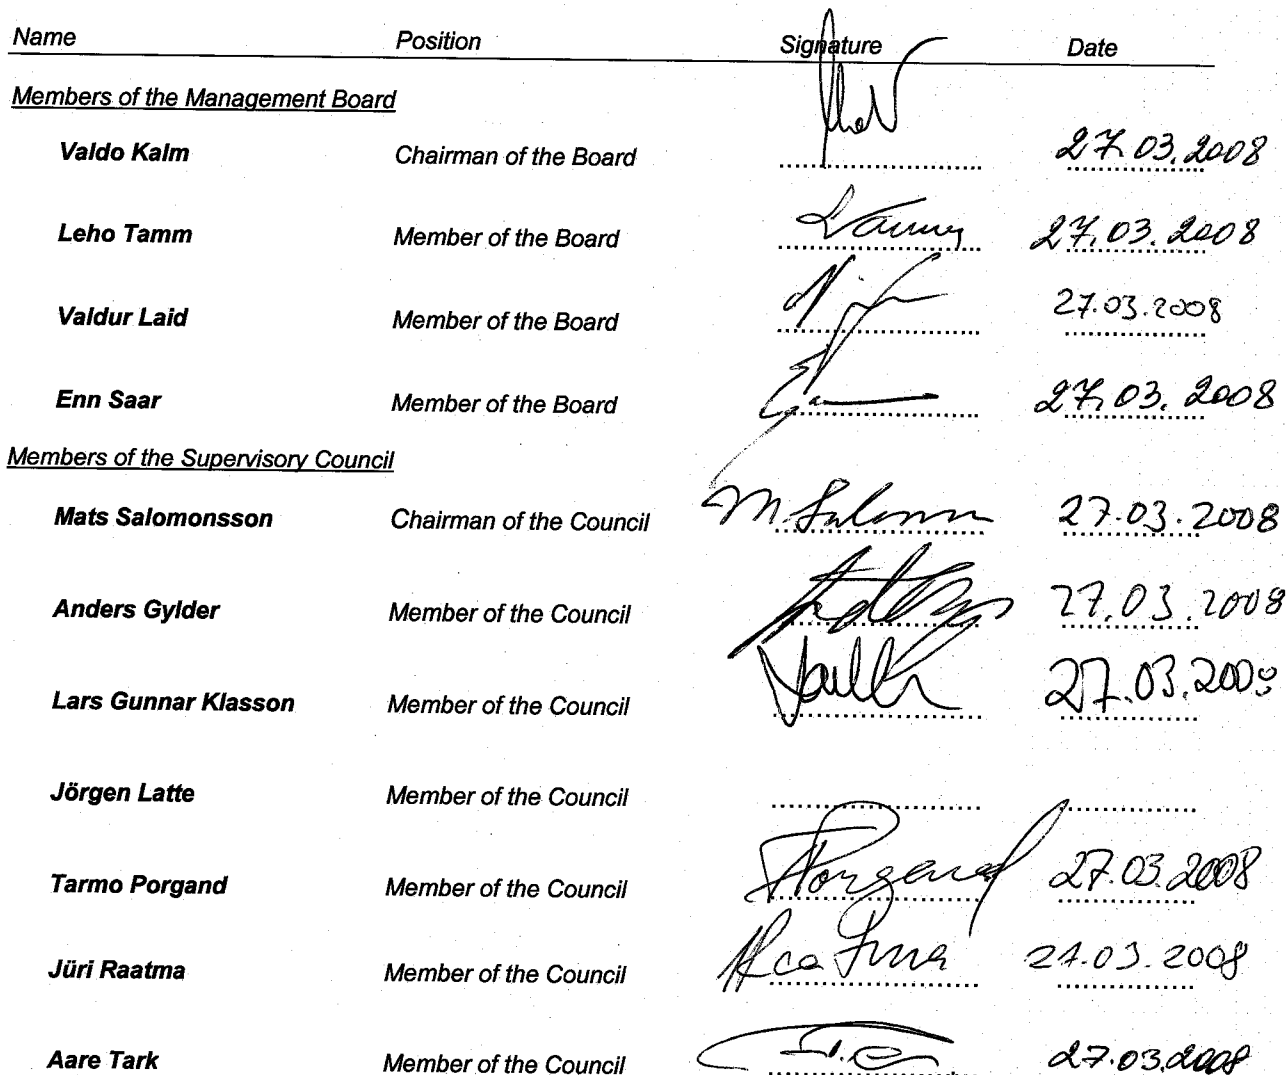 Name Position Signature Date
Members of the Management Board
Valdo Kalm Chairman of the Board 27.03.2008
Leho Tamm Member of the Board 27.03.2008
Valdur Laid Member of the Board 27.03.2008
Enn Saar Member of the Board 27.03.2008
Members of the Supervisory Council
Mats Salomonsson Chairman of the Council 27.03.2008
Anders Gylder Member of the Council 27.03.2008
Lars Gunnar Klasson Member of the Council 27.03.2008
Jörgen Latte Member of the Council
Tarmo Porgand Member of the Council Porgand 27.03.2008
Jüri Raatma Member of the Council 27.03.2008
Aare Tark Member of the Council 27.03.2008